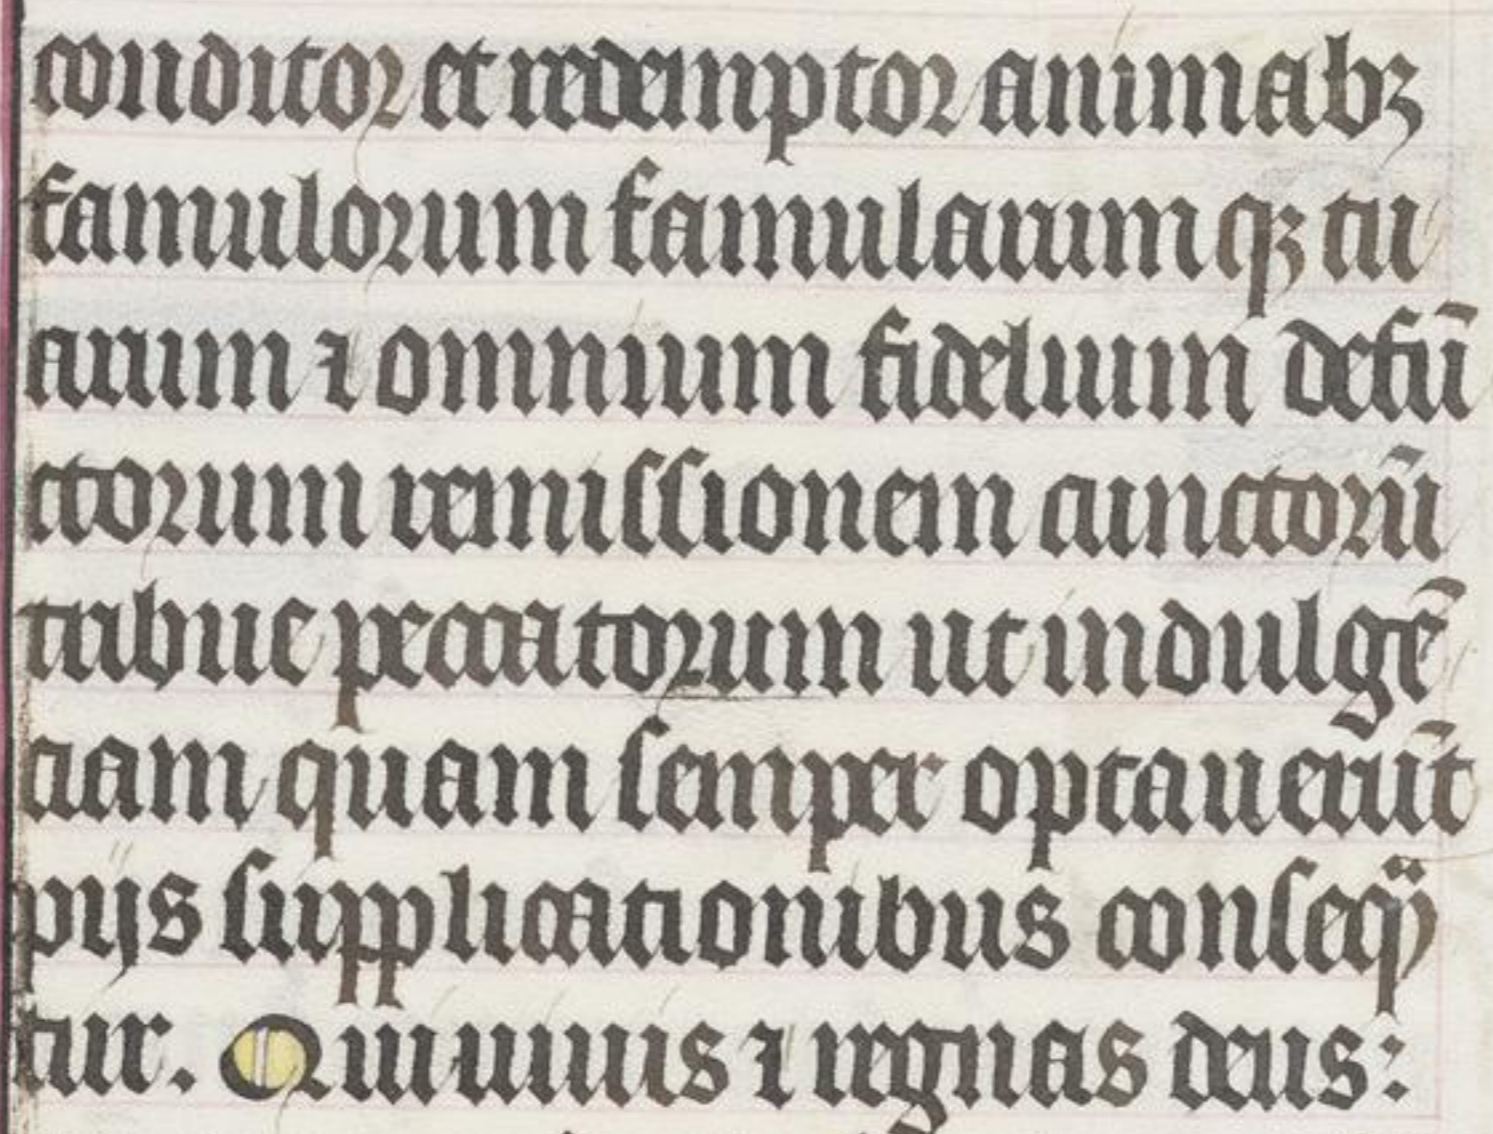 conditor et redemptor animabꝫ
famulorum famularumqꝫ tu
arum ⁊ omnium fidelium defū
ctorum remissionem cunctorū
tribue peccatorum ut indulgē
tiam quam semper optauerūt
pijs supplicationibus conseqͣ̈
tur. Qui uiuis ⁊ regnas deus: